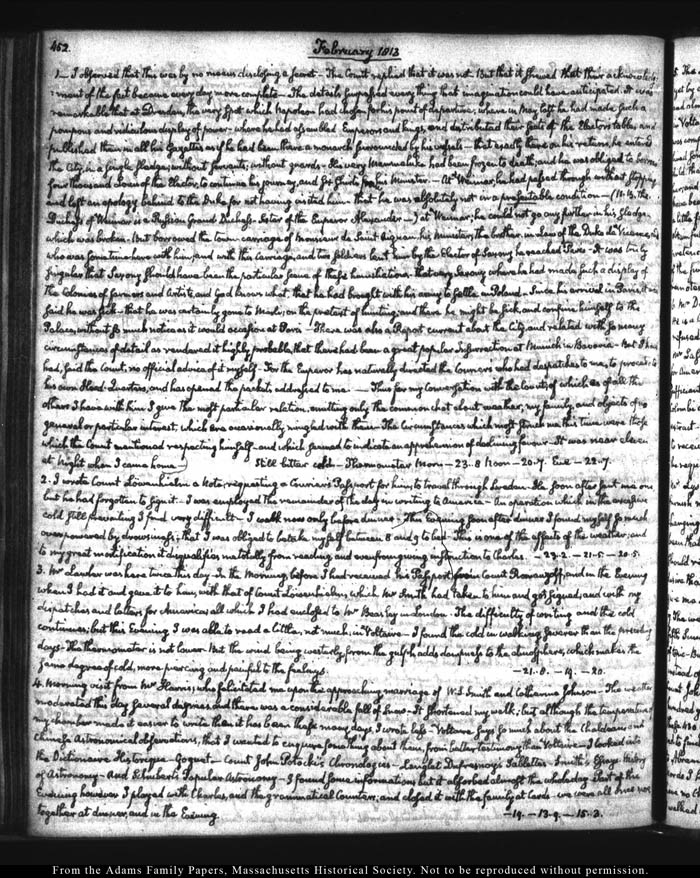 452.
February 1813
1_ I observed that this was by no means disclosing a secret_ The Count replied that it was not. But that it shewed that their acknowledg-
ment of the fact became every day more complete_ The details surpassed every thing that imagination could have anticipated. It was
remarkable that at Dresden, the very spot which Napoleon had for his point of departure, where in May last he had made such a
pompous and ridiculous display of power_ where he had assembled Emperors and Kings, and distributed their seats at the Electors tables, and
published them in all his Gazettes as if he had been there a monarch surrounded by his vassals_ that exactly there on his return, he entered
the City in a single sledge; without servants; without guards_ His very Mameluke had been frozen to death; and he was obliged to borrow
four thousand Louis of the Elector, to continue his journey, and six shirts from his Minister_ At Weimar, he had passed through without stopping
and left an apology behind to the Duke for not having visited him_ that he was absolutely not in a presentable condition_ (N.B. the
Duchess of Weimar is a Russian Grand Duchess, Sister of the Emperor Alexander_) at Weimar; he could not go any further in his sledge,
which was broken. But borrowed the town-carriage of Monsieur de Saint Aignan, his Minister, the brother-in-law of the Duke de Vicence,
who was sometime here with him; and with this carriage, and two soldiers lent him by the Elector of Saxony he reached Paris_ It was truly
singular that Saxony should have been the particular scene of these humiliations. that very Saxony where he had made such a display of
the Colonies of farmers and Artists, and God knows what, that he had brought with his army to settle in Poland_ Since his arrival in Paris it was
said he was sick_ that he was certainly gone to Marli; on the pretext of hunting; and there he might be sick, and confine himself to the
Palace, without so much notice as it would occasion at Paris_ There was also a Report current about the City, and related with so many
circumstances of detail as rendered it highly probable, that there had been a great popular Insurrection at Munich in Bavaria_ But I have
had, said the Count, no official advice of it myself_ For the Emperor has naturally directed the Couriers who had despatches to me, to proceed to
his own Head-Quarters, and has opened the packets addressed to me._ Thus far my Conversation with the Count; of which as of all the
others I have with him I give the most particular relation, omitting only the common chat about weather, my family, and objects of no
general or particular interest, which are occasionally mingled with them_ The circumstances which most struck me this time were those
which the Count mentioned respecting himself_ and which seemed to indicate an apprehension of declining favour_ It was near eleven
at night when I came home_ Still bitter cold_ Thermometer Morn_ 23.8 Noon_ 20.7. Eve_ 22.7.
2. I wrote Count Löwenhielm a Note, requesting a Courier's Passport for him; to travel through Sweden. He soon after sent me one
but he had forgotten to sign it_ I was employed the remainder of the day in writing to America_ An operation which in the excessive
cold still prevailing I find very difficult_ I walk now only before dinner; This Evening soon after dinner I found myself so much
overpowered by drowsiness; that I was obliged to betake myself between 8 and 9 to bed_ This is one of the effects of the weather; and
to my great mortification it disqualifies me totally from reading and even from giving instruction to Charles. _23.2_ 21.5_ 20.5.
3. Mr Lander was here twice this day. In the Morning, before I had received his Passport from Count Romanzoff, and in the Evening
when I had it and gave it to him, with that of Count Löwenhielm, which Mr Smith had taken to him and got signed, and with my
dispatches and letters for America; all which I had enclosed to Mr Beasley in London. The difficulty of writing and the cold
continues, but this Evening I was able to read a little, not much, in Voltaire_ I found the cold in walking severer than the preceding
days_ The thermometer is not lower. But the wind being westerly, from the gulph adds dampness to the atmosphere, which makes the
same degree of cold, more piercing and painful to the feelings. _21.0._ 19._ 20.
4. Morning visit from Mr Harris; who felicitated me upon the approaching marriage of W.S. Smith and Catherine Johnson_ The weather
moderated this day several degrees, and there was a considerable fall of snow_ It shortened my walk; but although the temperature of
my chamber made it easier to write than it has been these many days, I wrote less_ Voltaire says so much about the Chaldeans and
Chinese Astronomical observations, that I wanted to enquire something about them, from better testimony than Voltaire_ I looked into
the Dictionaire Historique_ Goguet_ Count John Potocki's Chronologies_ Lenglet Dufresnoy's Tablettes_ Smith's Essays History
of Astronomy_ And Schubert's Popular Astronomy_ I found some information; but it absorbed almost the whole day. Part of the
Evening however I played with Charles, and the grammatical Counters; and closed it with the family at Cards_ we were all
together at dinner, and in the Evening. _19._ 13.9._ 15.3.
From the Adams Family Papers, Massachusetts Historical Society. Not to be reproduced without permission.